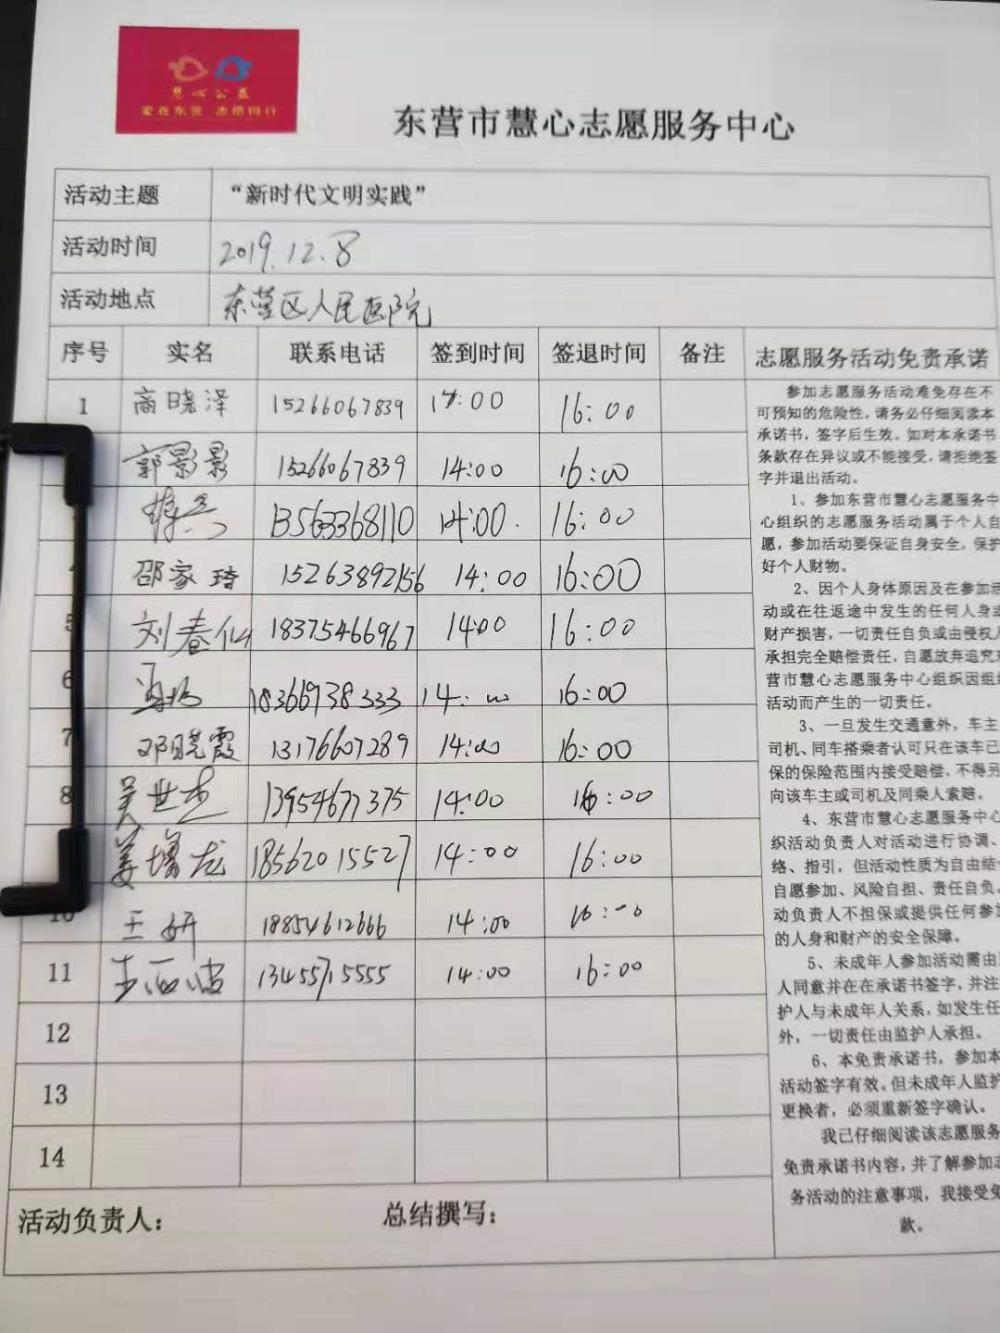 慧心公益
爱在东营 志愿同行
东营市慧心志愿服务中心
活动主题 “新时代文明实践”
活动时间 2019.12.8
活动地点 东营区人民医院
序号 实名 联系电话 签到时间 签退时间 备注
1 商晓泽 15266067839 14:00 16:00
郭影影 15266067839 14:00 16:00
13563368110 14:00. 16:00
邵家琦 15263892156 14:00 16:00
5 刘春仙 18375466967 14:00 16:00
6 18366938333 14:00 16:00
7 邓晓霞 13176607289 14:00 16:00
8 吴世杰 13954677375 14:00 16:00
姜增龙 18562015527 14:00 16:00
10 王妍 18854612666 14:00 16:00
11 13455715555 14:00 16:00
12
13
14
活动负责人： 总结撰写：
志愿服务活动免责承诺
参加志愿服务活动难免存在不
可预知的危险性，请务必仔细阅读本
承诺书，签字后生效。如对本承诺书
条款存在异议或不能接受，请拒绝签
字并退出活动。
1、参加东营市慧心志愿服务中
心组织的志愿服务活动属于个人自
愿，参加活动要保证自身安全，保护
好个人财物。
2、因个人身体原因及在参加活
动或在往返途中发生的任何人身或
财产损害，一切责任自负或由侵权人
承担完全赔偿责任，自愿放弃追究东
营市慧心志愿服务中心组织因组织
活动而产生的一切责任。
3、一旦发生交通意外，车主
司机、同车搭乘者认可只在该车已
保的保险范围内接受赔偿，不得另
向该车主或司机及同乘人索赔。
4、东营市慧心志愿服务中心
织活动负责人对活动进行协调、
络、指引，但活动性质为自由结
自愿参加、风险自担、责任自负。
动负责人不担保或提供任何参加
的人身和财产的安全保障。
5、未成年人参加活动需由
人同意并在在承诺书签字，并注
护人与未成年人关系，如发生任
外，一切责任由监护人承担。
6、本免责承诺书，参加本
活动签字有效。但未成年人监护
更换者，必须重新签字确认。
我已仔细阅读该志愿服务
免责承诺书内容，并了解参加志
务活动的注意事项，我接受免
款。